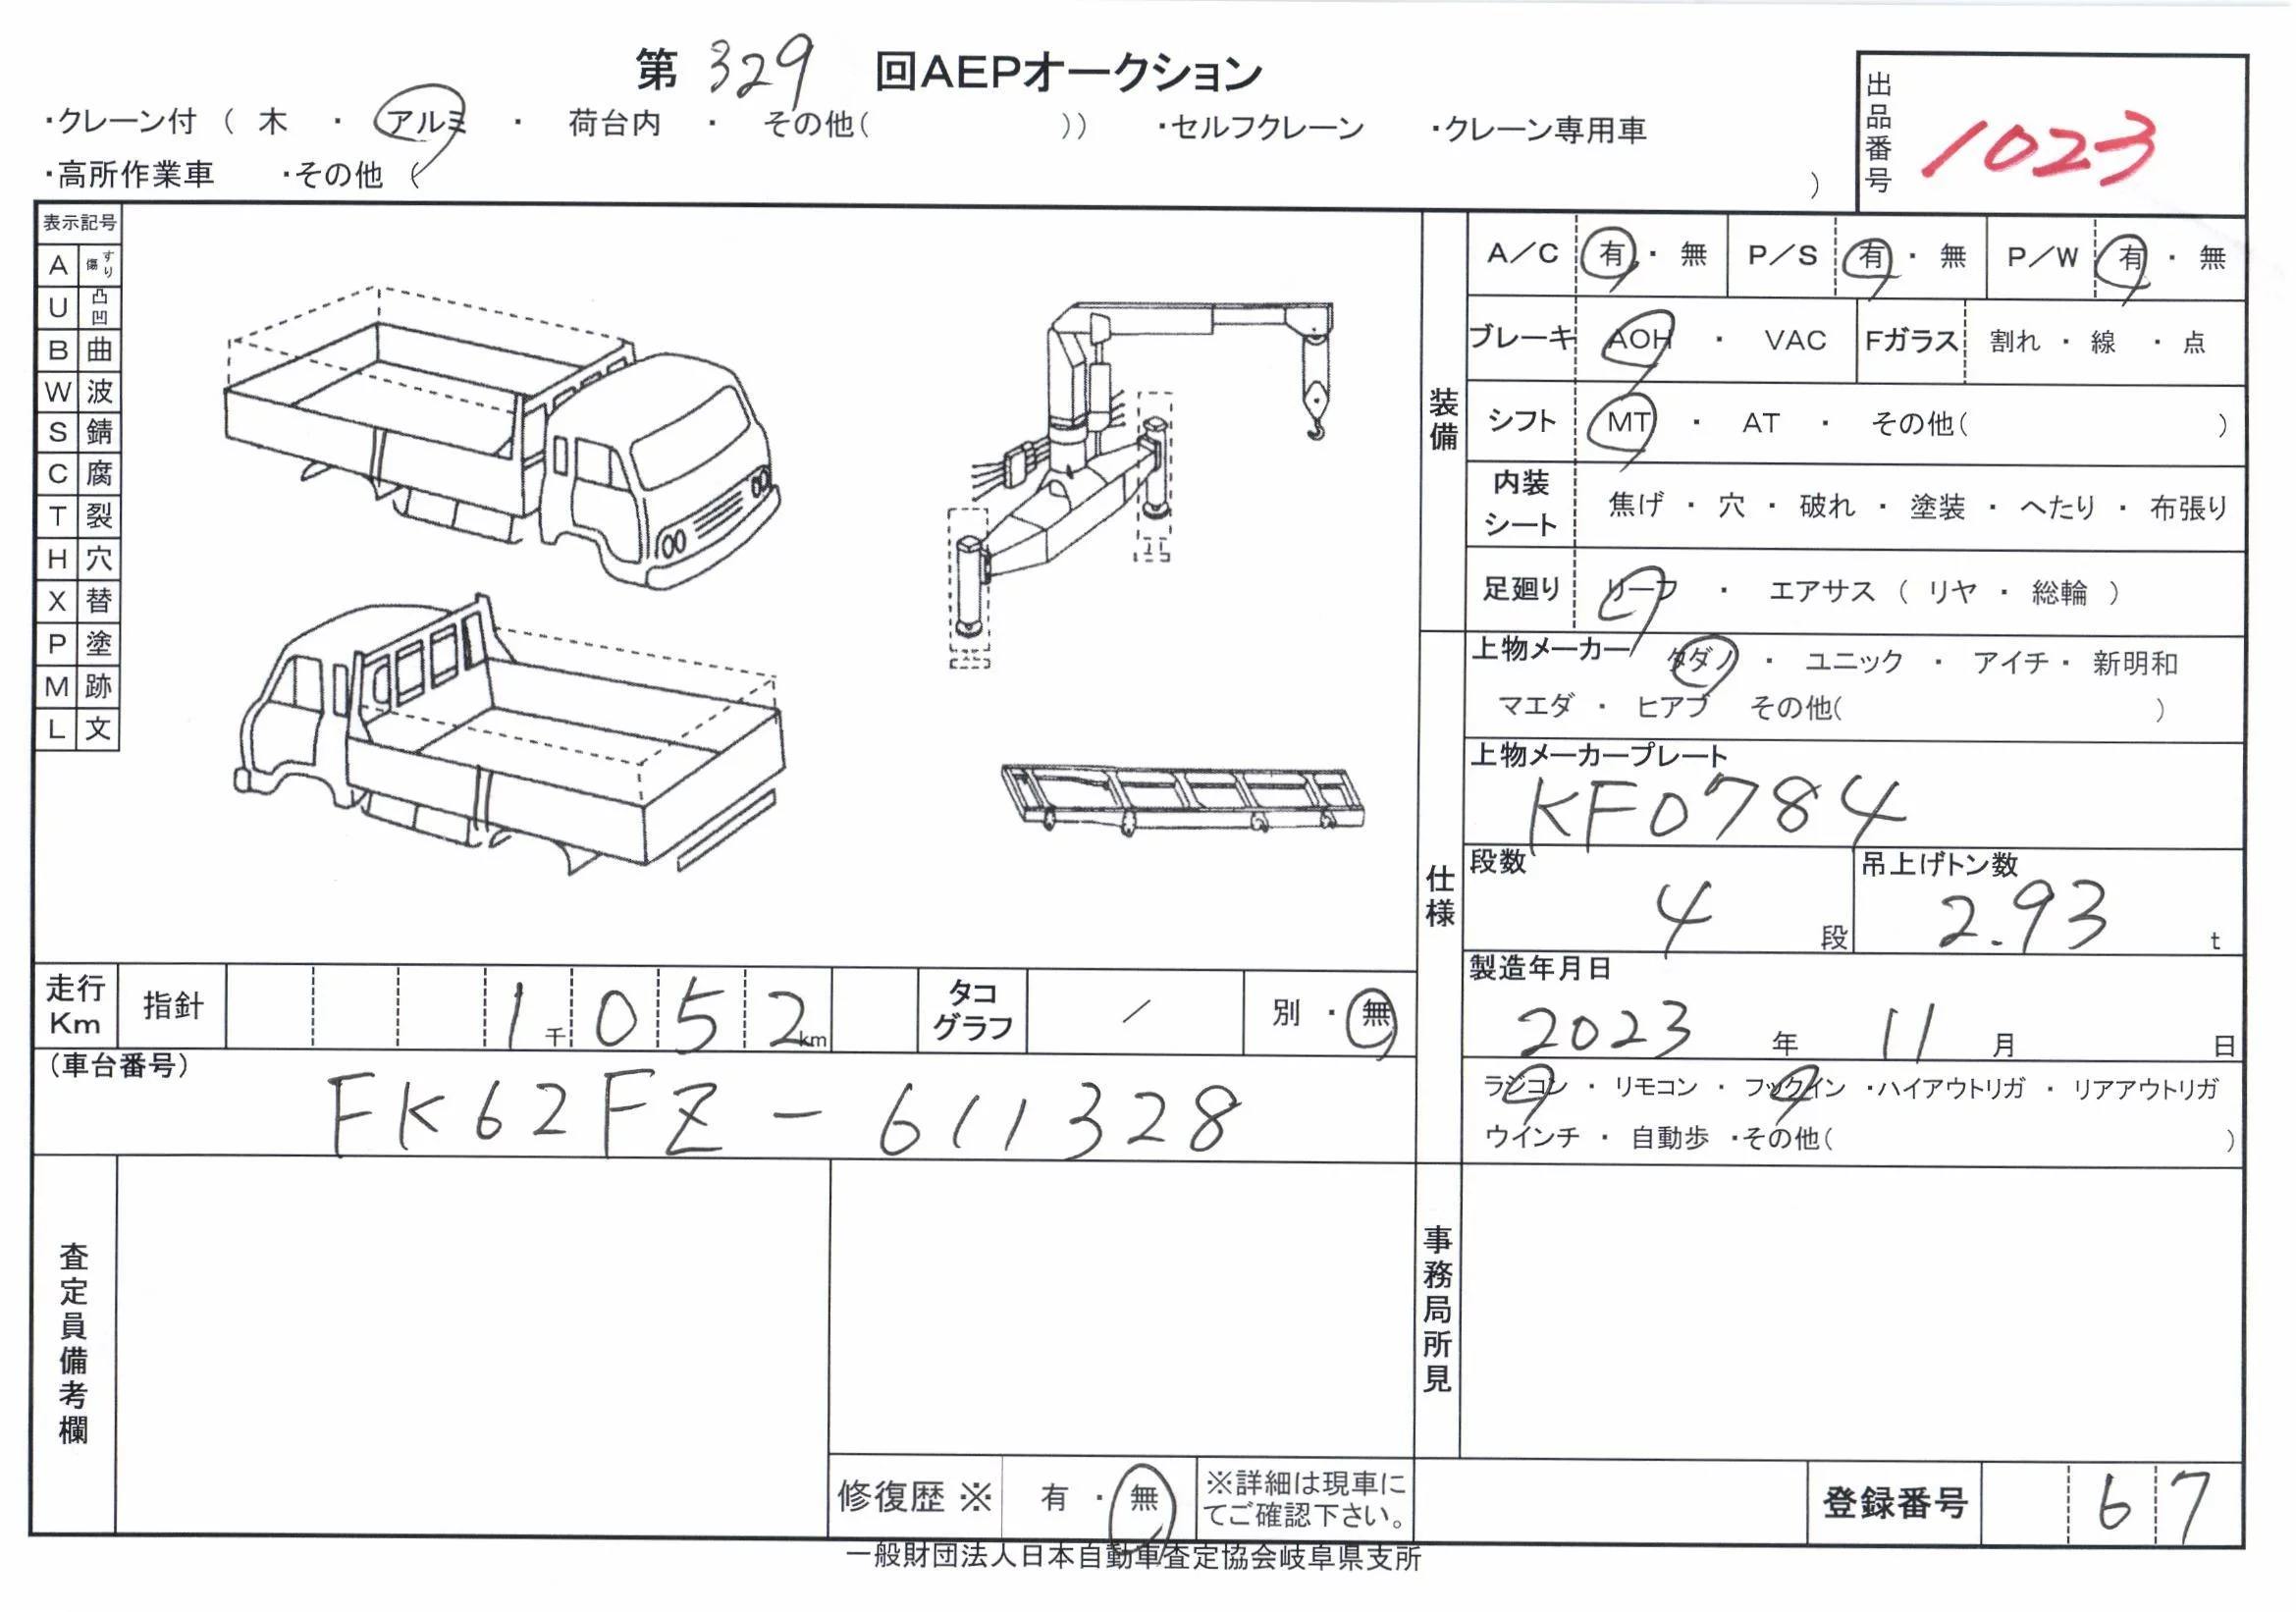 第 329 回AEPオークション
・クレーン付 ( 木 ・ アルミ ・ 荷台内 ・ その他( )) ・セルフクレーン ・クレーン専用車
・高所作業車 ・その他 ( )
出品番号 1023
表示記号
A すり傷
U 凸凹
B 曲
W 波
S 錆
C 腐
T 裂
H 穴
X 替
P 塗
M 跡
L 文
装備
A/C 有 ・ 無 P/S 有 ・ 無 P/W 有 ・ 無
ブレーキ AOH ・ VAC Fガラス 割れ ・ 線 ・ 点
シフト MT ・ AT ・ その他( )
内装シート 焦げ ・ 穴 ・ 破れ ・ 塗装 ・ へたり ・ 布張り
足廻り リーフ ・ エアサス ( リヤ ・ 総輪 )
仕様
上物メーカー タダノ ・ ユニック ・ アイチ ・ 新明和
マエダ ・ ヒアブ その他( )
上物メーカープレート
KF0784
段数 4 段 吊上げトン数 2.93 t
製造年月日
2023 年 11 月 日
ラジコン ・ リモコン ・ フックイン ・ハイアウトリガ ・ リアアウトリガ
ウインチ ・ 自動歩 ・その他( )
走行Km 指針 1千052km タコグラフ / 別 ・ 無
(車台番号)
FK62FZ-611328
査定員備考欄
事務局所見
修復歴 ※ 有 ・ 無 ※詳細は現車に
てご確認下さい。
登録番号 67
一般財団法人日本自動車査定協会岐阜県支所